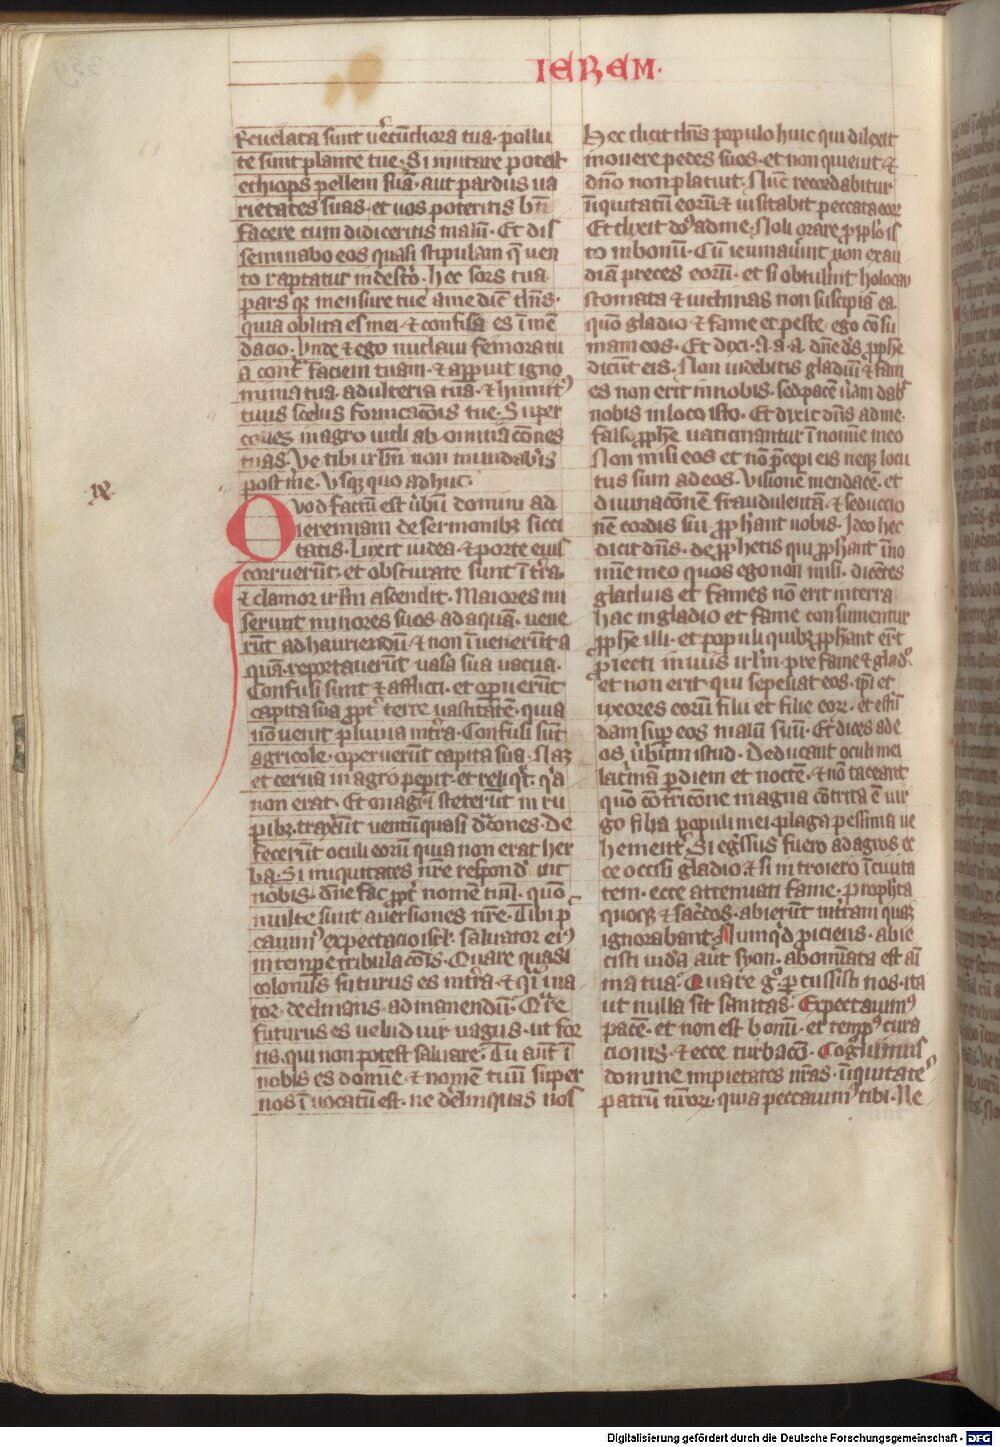 IEREM·
Reuelata sunt ue͛cu̅diora tua· pollu
te sunt plante tue· Si mutare potest
ethiops pellem sua̅· aut pardus ua
rietates suas· et uos poteritis bn̅
facere cum didiceritis malu̅· Et dis
seminabo eos quasi stipulam q̅ uen
to raptatur in desto͛· hec sors tua
pars qꝫ mensure tue ame dic̅ dn̅s·
quia oblita es mei· ⁊ confisa es i̅ me̅
dacio· Unde ⁊ ego nudaui femora tu
a cont̅ faciem tuam· ⁊ apparuit igno
minia tua adulteria tua̅· ⁊ hinnit᷒
tuus scelus fornicaco̅is tue· Super
colles in agro uidi abominaco̅nes
tuas· Ve tibi irl̅m non mundab̅is
post me· Usqꝫ quo adhuc·
ix
Quod factu̅ est u̅bu̅ domini ad
ieremiam de sermonibꝫ sicci
tatis· Luxit iudea· ⁊ porte eius
corruerūt· et obscurate sunt i̅ t̅ra·
⁊ clamor irl̅m ascendit· Maiores mi
serunt minores suos ad aqua̅· uene
ru̅t ad hauriendu̅ ⁊ non i̅uenerūt a
qua̅· reportaueru̅t uasa sua uacua·
Confusi sunt ⁊ afflicti· et operuerūt
capita sua ꝓpt͛ terre uastitate̅· quia
no̅ uenit pluuia i̅ t͛ra· Confusi su̅t
agricole· operuerūt capita sua· Naꝫ
et cerua in agro pep̅it· et reliq̅t· q̅a
non erat· Et onag͛i steterūt in ru
pibꝫ· traxerūt uentu̅ quasi d͛cones· De
fecerūt oculi eoru̅ quia non erat her
ba· Si iniquitates nr̅e respond͛ int
nobis· dn̅e fac ꝓpt͛ nome̅ tuu̅· quo̅
multe sunt auersiones nr̅e· Tibi p̅
cauim᷒ expectacio isrl̅· saluator ei᷒
in tempe͛ tribulaco̅is· Quare quasi
colonus futurus es in t͛ra· ⁊ q̅i uia
tor declinans· ad manendu̅· Q͛re
futurus es uelud uir uagus· ut for
tis· qui non potest saluare· Tu aut̅ i̅
nobis es domine· ⁊ nome̅ tuu̅ super
nos i̅uocatu̅ est· ne derelinquas nos·
Hec dicit dn̅s populo huic qui dilexit
mouere pedes suos· et non quieuit ⁊
dn̅o non placuit· Nu̅c recordabitur
i̅iquitatu̅ eoru̅ ⁊ uisitabit peccata eoꝝ
Et dixit do̅s ad me· Noli orare ꝓ ppl̅o is
to in bonu̅· Cu̅ ieiunaueri̅nt non exau
dia̅ preces eoru̅· et si obtulerint holocau
stomata ⁊ uictimas non suscipia̅ ea·
quo̅ gladio ⁊ fame et peste ego co̅su
mam eos· Et dixi· A·a·a· dn̅e ds̅ ꝓphe
dicu̅t eis· Non uidebitis gladiu̅ ⁊ fam
es non erit in nobis· sed pace̅ u͛am dab̅
nobis in loco isto· Et dixit dn̅s ad me·
falso ꝓphe uaticinantur i̅ nomi̅e meo
Non misi eos et no̅ p̅cepi eis neqꝫ locu
tus sum ad eos· Visione̅ mendace̅· et
diuinaco̅ne̅ fraudulenta̅· ⁊ seducco
ne̅ cordis sui̅ ꝓph̅ant uobis· Ideo hec
dicit dn̅s· de ꝓphetis qui ꝓph̅ant i̅ no
mi̅e meo quos ego non misi· dice̅tes
gladius et fames no̅ erit in terra
hac in gladio et fame consumentur
ꝓphe illi· et populi quibꝫ ꝓph̅ant er̅t
ꝓiecti in uiis irl̅m· pre fame ⁊ glad͛·
et non erit qui sepeliat eos· ip̅i et
uxores eoru̅ filii et filie eoꝝ· et effu̅
dam sup͛ eos malu̅ suu̅· Et dices ad e
os u̅bum istud· Deducant oculi mei
lacrima̅ p̱ diem et nocte̅· ⁊ no̅ taceant
quo̅ co̅tricio̅ne magna co̅trita e̅ uir
go filia populi mei· plaga pessima ue
hement͛· Si eg͛ssus fuero ad agros ec
ce occisi gladio· ⁊ si introiero i̅ ciuita
tem· ecce attenuati fame· ꝓpheta
quoqꝫ ⁊ sac͛dos· abierūt in t͛ram quaꝫ
ignorabant· Numq̅d ꝓiciens· abie
cisti iuda̅ aut syon· abomi̅ata est ai̅
ma tua· Quare g͛ p̱cussisti nos· ita
ut nulla sit sanitas· Expectauim᷒
pace̅· et non est bonu̅· et temp᷒ cura
cionis· ⁊ ecce turbaco̅· Cognouimus
domine impietates nr̅as· i̅iquitate᷒
patru̅ nr̅oꝝ· quia peccauim᷒ tibi· Ne
Digitalisierung gefördert durch die Deutsche Forschungsgemeinschaft - DFG